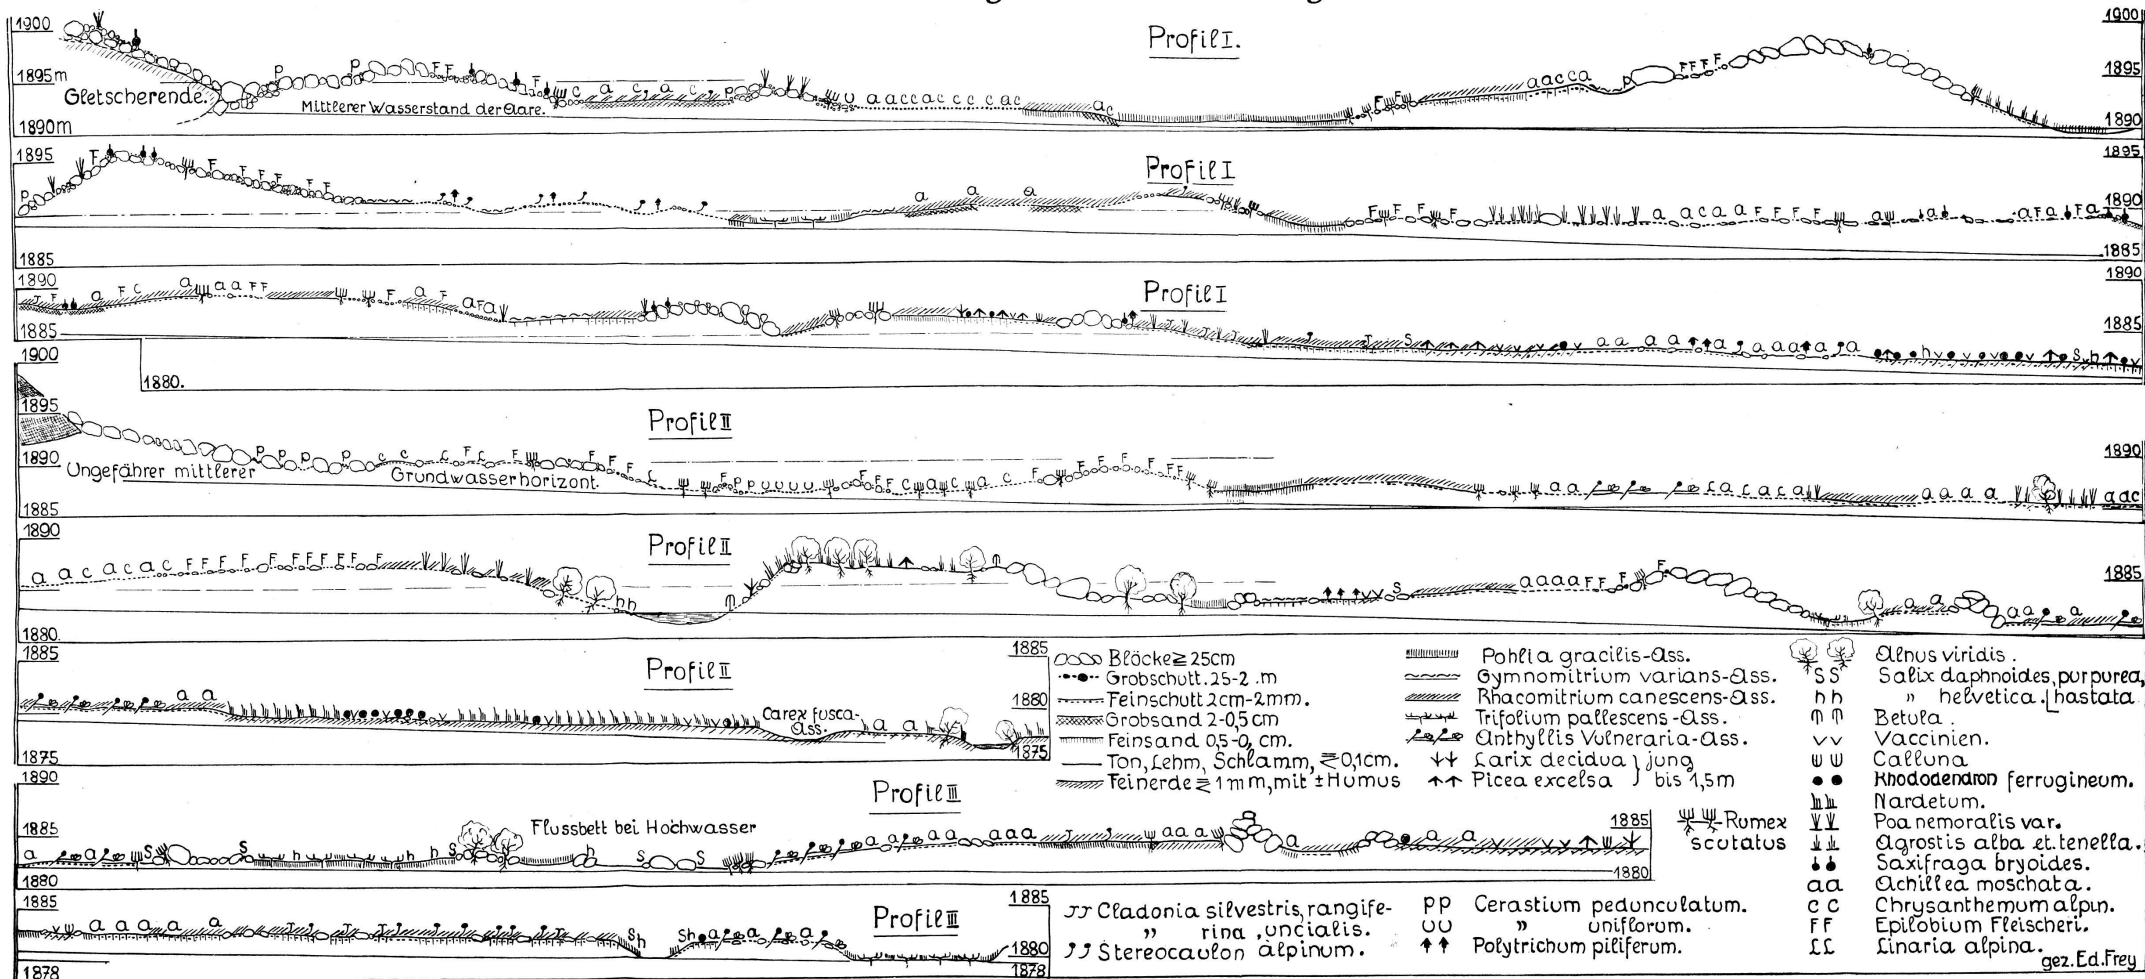 1900 Profil I. 1900
1895m 1895
Gletscherende. Mittlerer Wasserstand der Aare.
1890m 1890
1895 Profil I 1895
1890
1885 1885
1890 Profil I 1890
1885 1885
1880.
1900
1895 Profil II
1890 Ungefährer mittlerer Grundwasserhorizont. 1890
1885
1890 Profil II
1885
1880.
1885 Profil II 1885
1880
Carex fusca-
Ass.
1875 1875
1890 Profil III
1885 Flussbett bei Hochwasser 1885
1880 1880
1885 Profil III 1885
1880
1878 1878
Blöcke ≧ 25cm
Grobschutt. 25-2 .m
Feinschutt 2cm-2mm.
Grobsand 2-0,5 cm
Feinsand 0,5-0, cm.
Ton, Lehm, Schlamm, ≷ 0,1cm.
Feinerde ≷ 1mm, mit ± Humus
Pohlia gracilis-Ass.
Gymnomitrium varians-Ass.
Rhacomitrium canescens-Ass.
Trifolium pallescens-Ass.
Anthyllis Vulneraria-Ass.
Larix decidua } jung
Picea excelsa } bis 1,5m
Alnus viridis.
SS Salix daphnoides, purpurea,
hh " helvetica. [hastata
Betula.
vv Vaccinien.
Calluna
Rhododendron ferrugineum.
Nardetum.
Rumex
scutatus
Poa nemoralis var.
Agrostis alba et. tenella.
Saxifraga bryoides.
aa Achillea moschata.
cc Chrysanthemum alpin.
FF Epilobium Fleischeri.
LL Linaria alpina.
JJ Cladonia silvestris, rangife-
" rina, uncialis.
Stereocaulon alpinum.
PP Cerastium pedunculatum.
UU " uniflorum.
Polytrichum piliferum.
gez. Ed. Frey